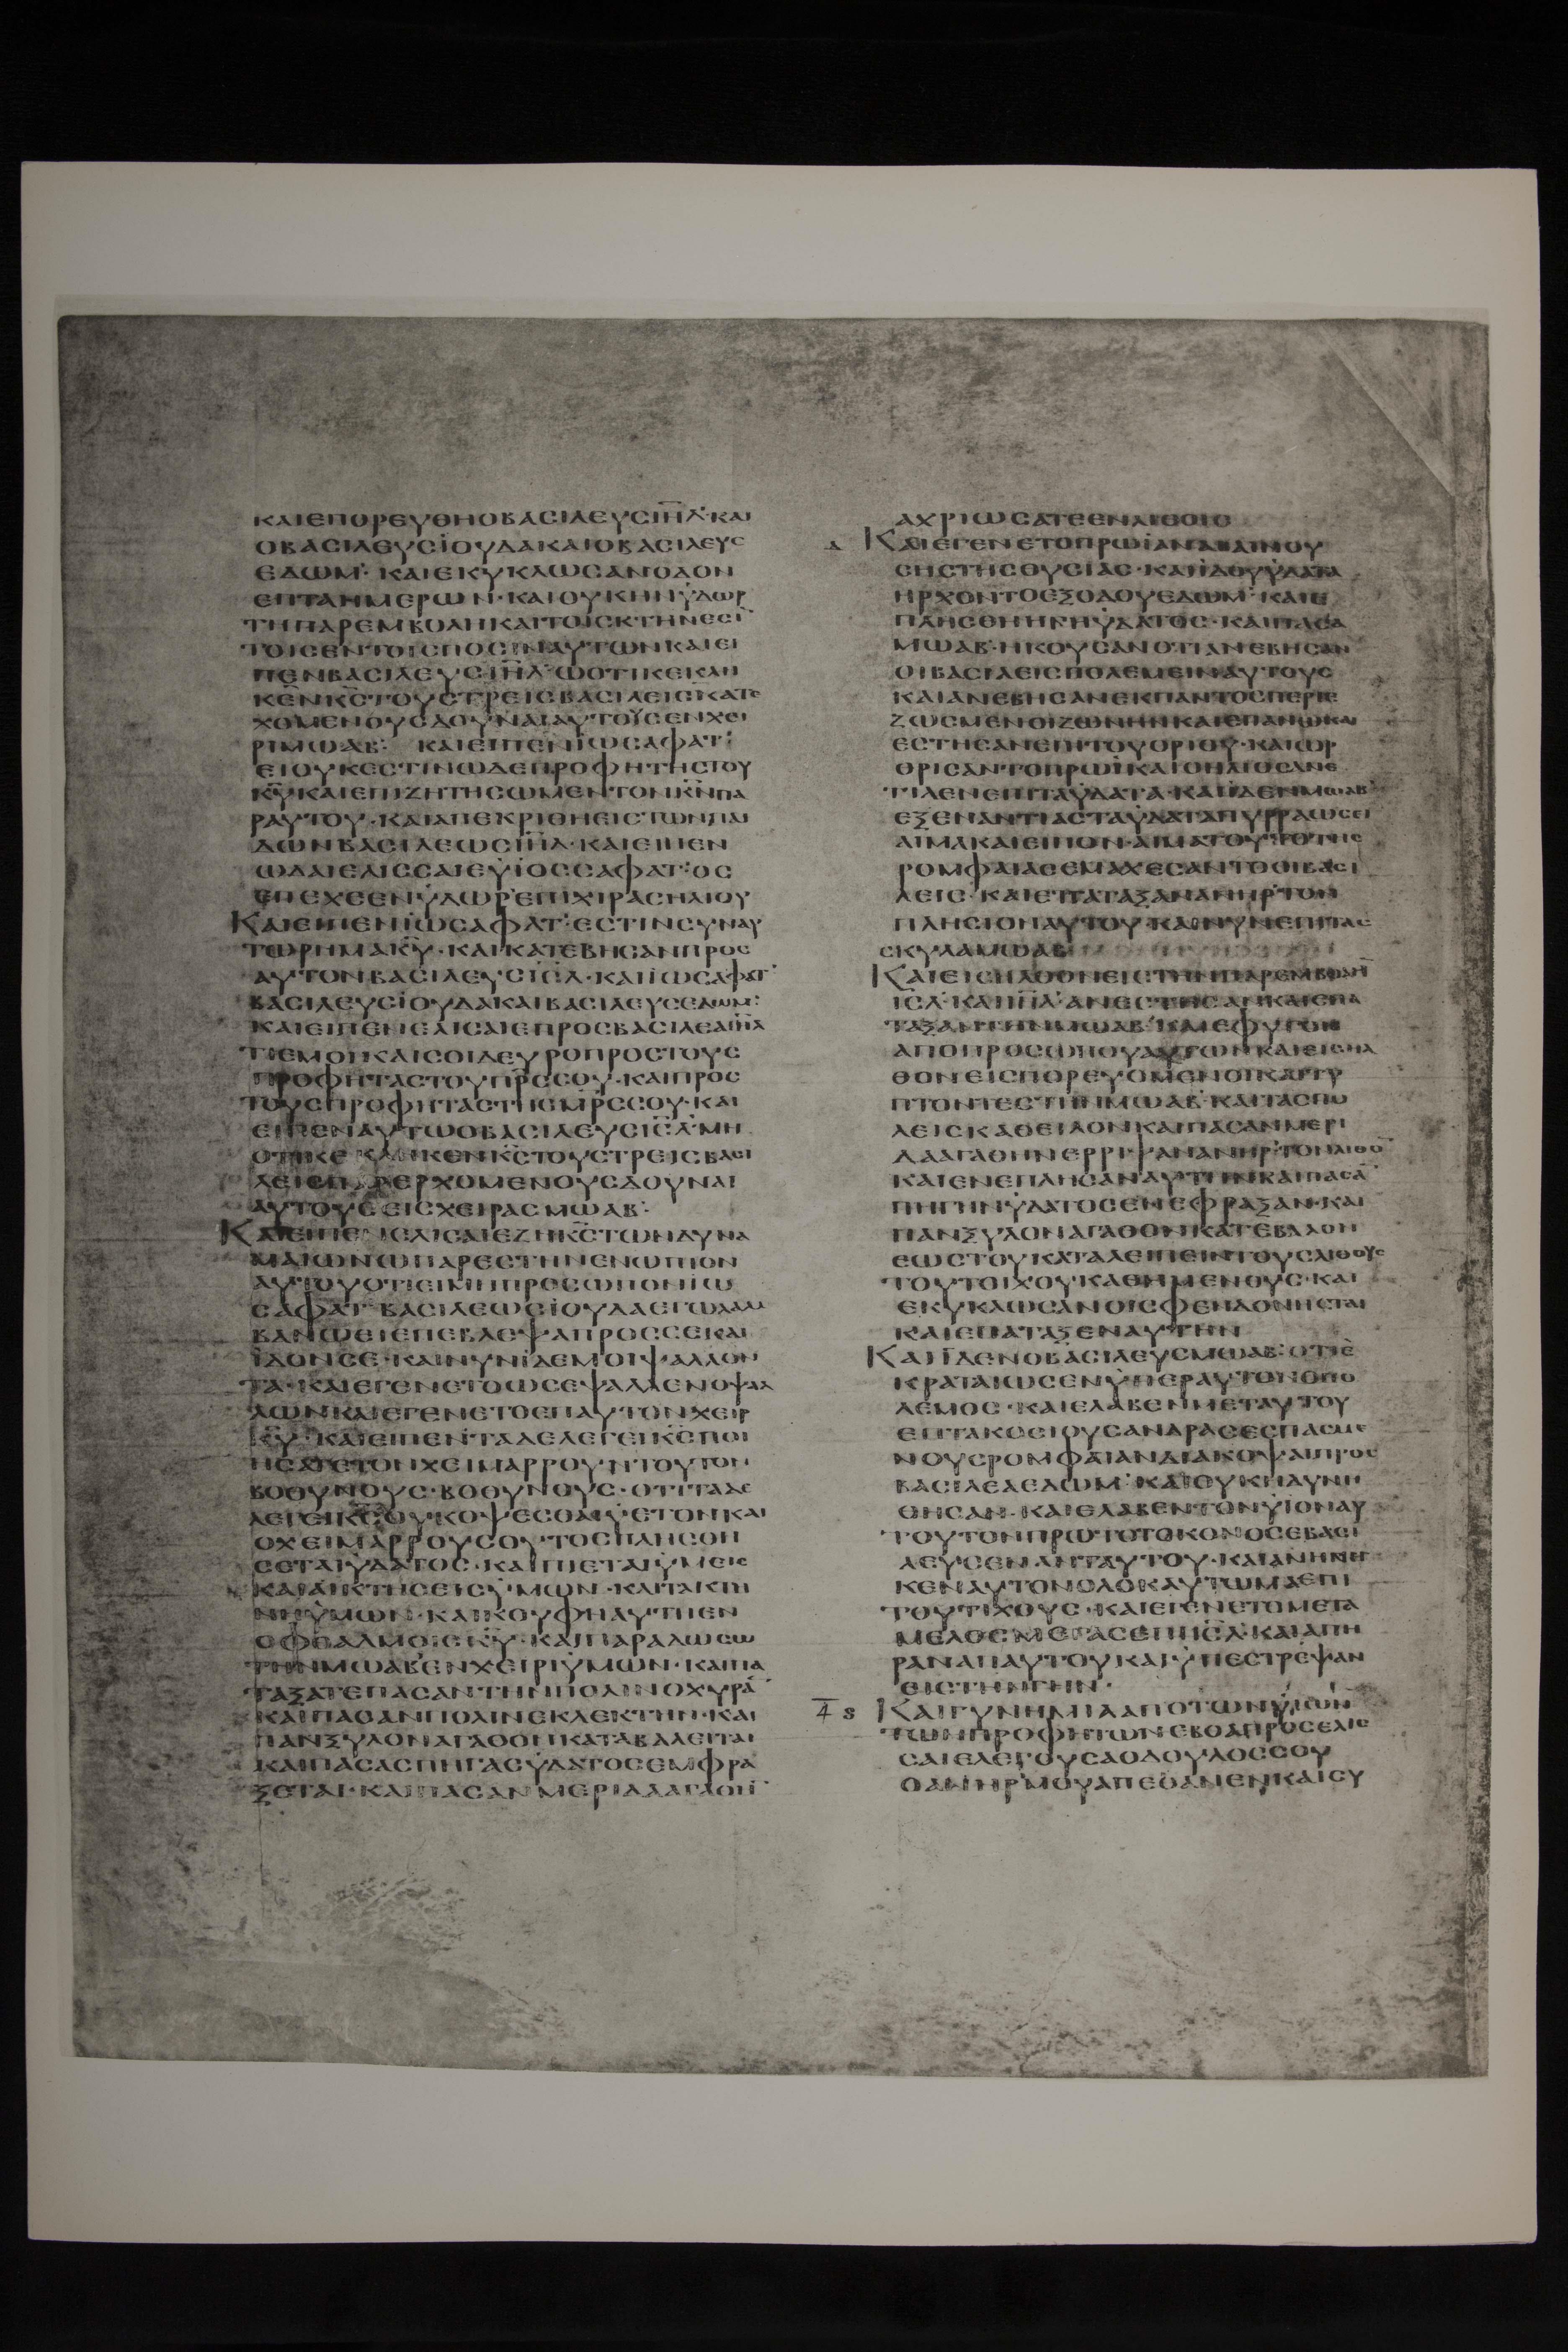 ΚΑΙΕΠΟΡΕΥΘΗΟΒΑCΙΛΕΥCΙΗ̅Λ̅·ΚΑΙ
ΟΒΑCΙΛΕΥCΪΟΥΔΑΚΑΙΟΒΑCΙΛΕΥC
ΕΔΩΜ· ΚΑΙΕΚΥΚΛΩCΑΝΟΔΟΝ
ΕΠΤΑΗΜΕΡΩΝ·ΚΑΙΟΥΚΗΝΫΔΩΡ
ΤΗΠΑΡΕΜΒΟΛΗΚΑΙΤΟΙCΚΤΗΝΕCΙ
ΤΟΙCΕΝΤΟΙCΠΟCΙΝΑΥΤΩΝΚΑΙΕΙ
ΠΕΝΒΑCΙΛΕΥCΙΗ̅Λ̅ΩΟΤΙΚΕΚΛΗ
ΚΕΝΚ̅C̅ΤΟΥCΤΡΕΙCΒΑCΙΛΕΙCΚΑΤΕ
ΧΟΜΕΝΟΥCΔΟΥΝΑΙΑΥΤΟΥCΕΝΧΕΙ
ΡΙΜΩΑΒ· ΚΑΙΕΙΠΕΝΪΩCΑΦΑΤ·
ΕΙΟΥΚΕCΤΙΝΩΔΕΠΡΟΦΗΤΗCΤΟΥ
Κ̅Υ̅ΚΑΙΕΠΙΖΗΤΗCΩΜΕΝΤΟΝΚ̅Ν̅ΠΑ
ΡΑΥΤΟΥ·ΚΑΙΑΠΕΚΡΙΘΗΕΙCΤΩΝΠΑΙ
ΔΩΝΒΑCΙΛΕΩCΙΗ̅Λ̅·ΚΑΙΕΙΠΕΝ
ΩΔΑΙΕΛΙCCΑΙΕΫΙΟCCΑΦΑΤ·ΟC
ΕΠΕΧΕΕΝΫΔΩΡΕΠΙΧΙΡΑCΗΛΙΟΥ
ΚΑΙΕΙΠΕΝΪΩCΑΦΑΤ·ΕCΤΙΝCΥΝΑΥ
ΤΩΡΗΜΑΚ̅Υ̅·ΚΑΙΚΑΤΕΒΗCΑΝΠΡΟC
ΑΥΤΟΝΒΑCΙΛΕΥCΙC̅Λ̅·ΚΑΙΪΩCΑΦΑΤ
ΒΑCΙΛΕΥCΪΟΥΔΑΚΑΙΒΑCΙΛΕΥCΕΔΩΜ·
ΚΑΙΕΙΠΕΝΕΛΙCΑΙΕΠΡΟCΒΑCΙΛΕΑΙΗ̅Λ̅
ΤΙΕΜΟΙΚΑΙCΟΙΔΕΥΡΟΠΡΟCΤΟΥC
ΠΡΟΦΗΤΑCΤΟΥΠ̅Ρ̅C̅CΟΥ·ΚΑΙΠΡΟC
ΤΟΥCΠΡΟΦΗΤΑCΤΗCΜ̅Ρ̅C̅CΟΥ·ΚΑΙ
ΕΙΠΕΝΑΥΤΩΟΒΑCΙΛΕΥCΙC̅Λ̅·ΜΗ
ΟΤΙΚΕΚΛΗΚΕΝΚ̅C̅ΤΟΥCΤΡΕΙCΒΑCΙ
ΛΕΙCΠΑΡΕΡΧΟΜΕΝΟΥCΔΟΥΝΑΙ
ΑΥΤΟΥCΕΙCΧΕΙΡΑCΜΩΑΒ·
ΚΑΙΕΙΠΕΝΕΛΙCΑΙΕΖΗΚ̅C̅ΤΩΝΔΥΝΑ
ΜΑΙΩΝΩΠΑΡΕCΤΗΝΕΝΩΠΙΟΝ
ΑΥΤΟΥΟΤΙΕΙΜΗΠΡΟCΩΠΟΝΪΩ
CΑΦΑΤ·ΒΑCΙΛΕΩCΪΟΥΔΑΕΓΩΛΑΜ
ΒΑΝΩΕΙΕΠΕΒΛΕΨΑΠΡΟCCΕΚΑΙ
ΪΔΟΝCΕ·ΚΑΙΝΥΝΪΔΕΜΟΙΨΑΛΛΟΝ
ΤΑ·ΚΑΙΕΓΕΝΕΤΟΩCΕΨΑΛΛΕΝΟΨΑΛ
ΛΩΝΚΑΙΕΓΕΝΕΤΟΕΠΑΥΤΟΝΧΕΙΡ
Κ̅Υ̅·ΚΑΙΕΙΠΕΝΤΑΔΕΛΕΓΕΙΚ̅C̅ΠΟΙ
ΗCΑΤΕΤΟΝΧΕΙΜΑΡΡΟΥΝΤΟΥΤΟΝ
ΒΟΘΥΝΟΥC·ΒΟΘΥΝΟΥC·ΟΤΙΤΑΔΕ
ΛΕΓΕΙΚ̅C̅ΟΥΚΟΨΕCΘΑΙΫΕΤΟΝΚΑΙ
ΟΧΕΙΜΑΡΡΟΥCΟΥΤΟCΠΛΗCΘΗ
CΕΤΑΙΫΔΑΤΟC·ΚΑΙΠΙΕΤΑΙΫΜΕΙC
ΚΑΙΑΙΚΤΗCΕΙCΫΜΩΝ·ΚΑΙΤΑΚΤΗ
ΝΗΫΜΩΝ·ΚΑΙΚΟΥΦΗΑΥΤΗΕΝ
ΟΦΘΑΛΜΟΙCΚ̅Υ̅·ΚΑΙΠΑΡΑΔΩCΩ
ΤΗΝΜΩΑΒΕΝΧΕΙΡΙΫΜΩΝ·ΚΑΙΠΑ
ΤΑΞΑΤΕΠΑCΑΝΤΗΝΠΟΛΙΝΟΧΥΡΑ̅
ΚΑΙΠΑCΑΝΠΟΛΙΝΕΚΛΕΚΤΗΝ·ΚΑΙ
ΠΑΝΞΥΛΟΝΑΓΑΘΟΝΚΑΤΑΒΑΛΕΙΤΑΙ
ΚΑΙΠΑCΑCΠΗΓΑCΫΔΑΤΟCΕΜΦΡΑ
ΞΕΤΑΙ·ΚΑΙΠΑCΑΝΜΕΡΙΔΑΑΓΑΘΗ̅
ΑΧΡΙΩCΑΤΕΕΝΛΙΘΟΙC
ΚΑΙΕΓΕΝΕΤΟΠΡΩΪΑΝΑΒΑΙΝΟΥ
CΗCΤΗCΘΥCΙΑC·ΚΑΙΪΔΟΥΫΔΑΤΑ
ΗΡΧΟΝΤΟΕΞΟΔΟΥΕΔΩΜ·ΚΑΙΕ
ΠΛΗCΘΗΗΓΗΫΔΑΤΟC·ΚΑΙΠΑCΑ
ΜΩΑΒ·ΗΚΟΥCΑΝΟΤΙΑΝΕΒΗCΑΝ
ΟΙΒΑCΙΛΕΙCΠΟΛΕΜΕΙΝΑΥΤΟΥC
ΚΑΙΑΝΕΒΗCΑΝΕΚΠΑΝΤΟCΠΕΡΙΕ
ΖΩCΜΕΝΟΙΖΩΝΗΝΚΑΙΕΠΑΝΩΚΑΙ
ΕCΤΗCΑΝΕΠΙΤΟΥΟΡΙΟΥ·ΚΑΙΩΡ
ΘΡΙCΑΝΤΟΠΡΩΪΚΑΙΟΗΛΙΟCΑΝΕ
ΤΙΛΕΝΕΠΙΤΑΫΔΑΤΑ·ΚΑΙΪΔΕΝΜΩΑΒ
ΕΞΕΝΑΝΤΙΑCΤΑΫΔΑΤΑΠΥΡΡΑΩCΕΙ
ΑΙΜΑΚΑΙΕΙΠΟΝ·ΑΙΜΑΤΟΥΤΟΤΗC
ΡΟΜΦΑΙΑCΕΜΑΧΕCΑΝΤΟΟΙΒΑCΙ
ΛΕΙC·ΚΑΙΕΠΑΤΑΞΑΝΑΝΗΡΤΟΝ
ΠΛΗCΙΟΝΑΥΤΟΥ·ΚΑΙΝΥΝΕΠΙΤΑC
CΚΥΛΑΜΩΑΒ
ΚΑΙΕΙCΗΛΘΟΝΕΙCΤΗΝΠΑΡΕΜΒΟΛΗ̅
ΙC̅Λ̅·ΚΑΙΙΗ̅Λ̅ΑΝΕCΤΗCΑΝΚΑΙΕΠΑ
ΤΑΞΑΝΤΗΝΜΩΑΒ·ΚΑΙΕΦΥΓΟΝ
ΑΠΟΠΡΟCΩΠΟΥΑΥΤΩΝΚΑΙΕΙCΗΛ
ΘΟΝΕΙCΠΟΡΕΥΟΜΕΝΟΙΚΑΙΤΥ
ΠΤΟΝΤΕCΤΗΝΜΩΑΒ·ΚΑΙΤΑCΠΟ
ΛΕΙCΚΑΘΕΙΛΟΝΚΑΙΠΑCΑΝΜΕΡΙ
ΔΑΑΓΑΘΗΝΕΡΡΙΨΑΝΑΝΗΡ·ΤΟΝΛΙΘΟ̅
ΚΑΙΕΝΕΠΛΗCΑΝΑΥΤΗΝΚΑΙΠΑCΑ̅
ΠΗΓΗΝΫΔΑΤΟCΕΝΕΦΡΑΞΑΝ·ΚΑΙ
ΠΑΝΞΥΛΟΝΑΓΑΘΟΝΚΑΤΕΒΑΛΟΝ
ΕΩCΤΟΥΚΑΤΑΛΕΙΠΕΙΝΤΟΥCΛΙΘΟΥC
ΤΟΥΤΟΙΧΟΥΚΑΘΗΜΕΝΟΥC·ΚΑΙ
ΕΚΥΚΛΩCΑΝΟΙCΦΕΝΔΟΝΗCΤΑΙ
ΚΑΙΕΠΑΤΑΞΕΝΑΥΤΗΝ
ΚΑΙΪΔΕΝΟΒΑCΙΛΕΥCΜΩΑΒ·ΟΤΙΕ
ΚΡΑΤΑΙΩCΕΝΫΠΕΡΑΥΤΟΝΟΠΟ
ΛΕΜΟC·ΚΑΙΕΛΑΒΕΝΜΕΤΑΥΤΟΥ
ΕΠΤΑΚΟCΙΟΥCΑΝΔΡΑCΕCΠΑCΜΕ
ΝΟΥCΡΟΜΦΑΙΑΝΔΙΑΚΟΨΑΙΠΡΟC
ΒΑCΙΛΕΑΕΔΩΜ·ΚΑΙΟΥΚΗΔΥΝΗ
ΘΗCΑΝ·ΚΑΙΕΛΑΒΕΝΤΟΝΫΙΟΝΑΥ
ΤΟΥΤΟΝΠΡΩΤΟΤΟΚΟΝΟCΕΒΑCΙ
ΛΕΥCΕΝΑΝΤΑΥΤΟΥ·ΚΑΙΑΝΗΝΗ
ΚΕΝΑΥΤΟΝΟΛΟΚΑΥΤΩΜΑΕΠΙ
ΤΟΥΤΙΧΟΥC·ΚΑΙΕΓΕΝΕΤΟΜΕΤΑ
ΜΕΛΟCΜΕΓΑCΕΠΙΙC̅Λ̅·ΚΑΙΑΠΗ
ΡΑΝΑΠΑΥΤΟΥΚΑΙΫΠΕCΤΡΕΨΑΝ
ΕΙCΤΗΝΓΗΝ·
4 s ΚΑΙΓΥΝΗΜΙΑΑΠΟΤΩΝΫΙΩΝ
ΤΩΝΠΡΟΦΗΤΩΝΕΒΟΑΠΡΟCΕΛΙC
CΑΙΕΛΕΓΟΥCΑΟΔΟΥΛΟCCΟΥ
ΟΑΝΗΡΜΟΥΑΠΕΘΑΝΕΝΚΑΙCΥ